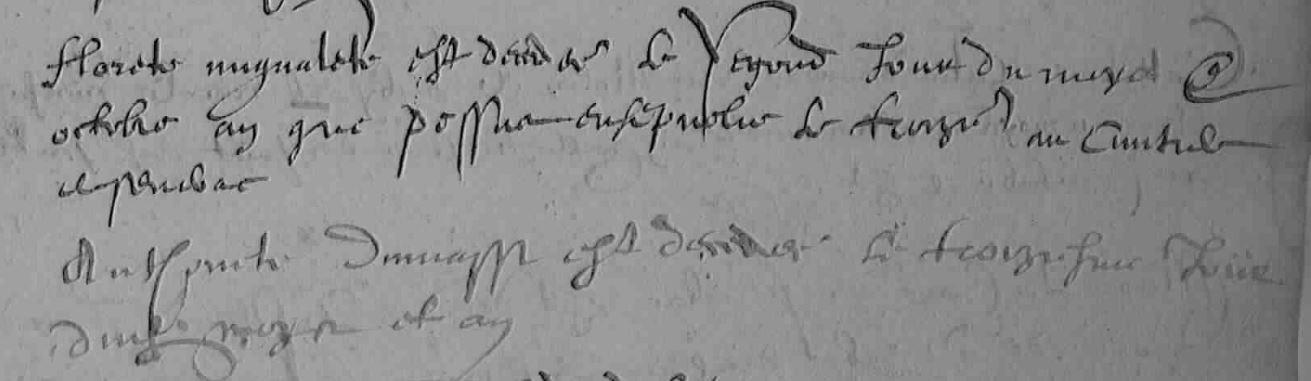 florete mugnalete est decedee le segond Jour du moys d
octobre an que dessus ensepvelie le troizie au
Anthonete Dumasse est decedee le troiziesme Jour
dud moys et an